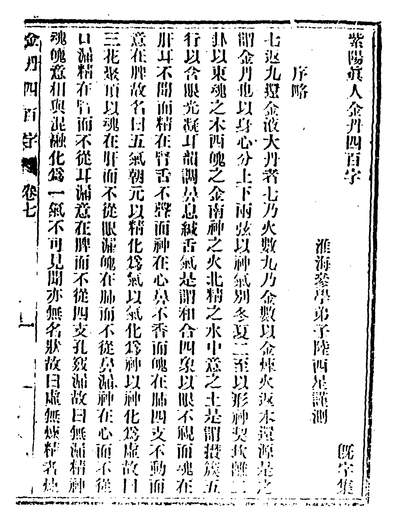 紫陽眞人金丹四百字
淮海參學弟子陸西星謹測 既字集
序略
七返九還金液大丹者七乃火數九乃金數以金煉火返本還源是之
謂金丹也以身心分上下兩弦以神氣別冬夏二至以形神契坎離二
卦以東魂之木西魄之金南神之火北精之水中意之土是謂攢簇五
行以含眼光凝耳韻調鼻息緘舌氣是謂和合四象以眼不視而魂在
肝耳不聞而精在腎舌不聲而神在心鼻不香而魄在肺四支不動而
意在脾故名曰五氣朝元以精化爲氣以氣化爲神以神化爲虛故曰
三花聚頂以魂在肝而不從眼漏魄在肺而不從鼻漏神在心而不從
口漏精在腎而不從耳漏意在脾而不從四支孔竅漏故曰無漏精神
魂魄意相與混融化爲一氣不可見聞亦無名狀故曰虛無煉精者煉
金丹四百字 卷七 一